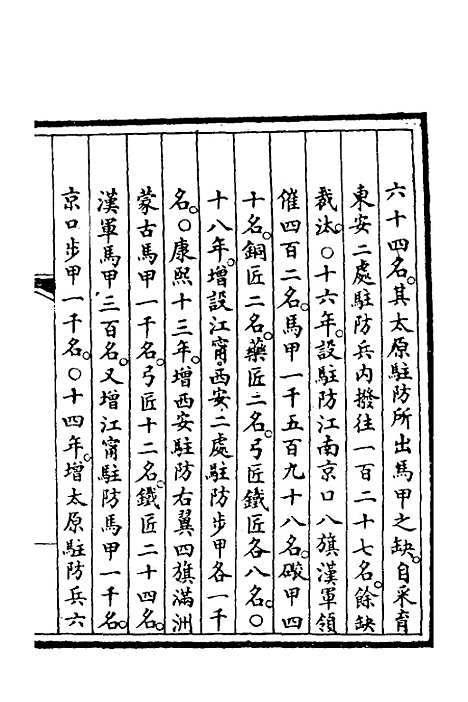 六十四名。其太原駐防所出馬甲之缺。自采育
東安二處駐防兵內撥往一百二十七名。餘缺
裁汰。○十六年。設駐防江南京口八旗漢軍領
催四百二名。馬甲一千五百九十八名。礟甲四
十名。銅匠二名。藥匠二名。弓匠鐵匠各八名。○
十八年。增設江甯。西安二處駐防步甲各一千
名。○康熙十三年。增西安駐防右翼四旗滿洲
蒙古馬甲一千名。弓匠十二名。鐵匠二十四名。
漢軍馬甲三百名。又增江甯駐防馬甲一千名。
京口步甲一千名。○十四年。增太原駐防兵六